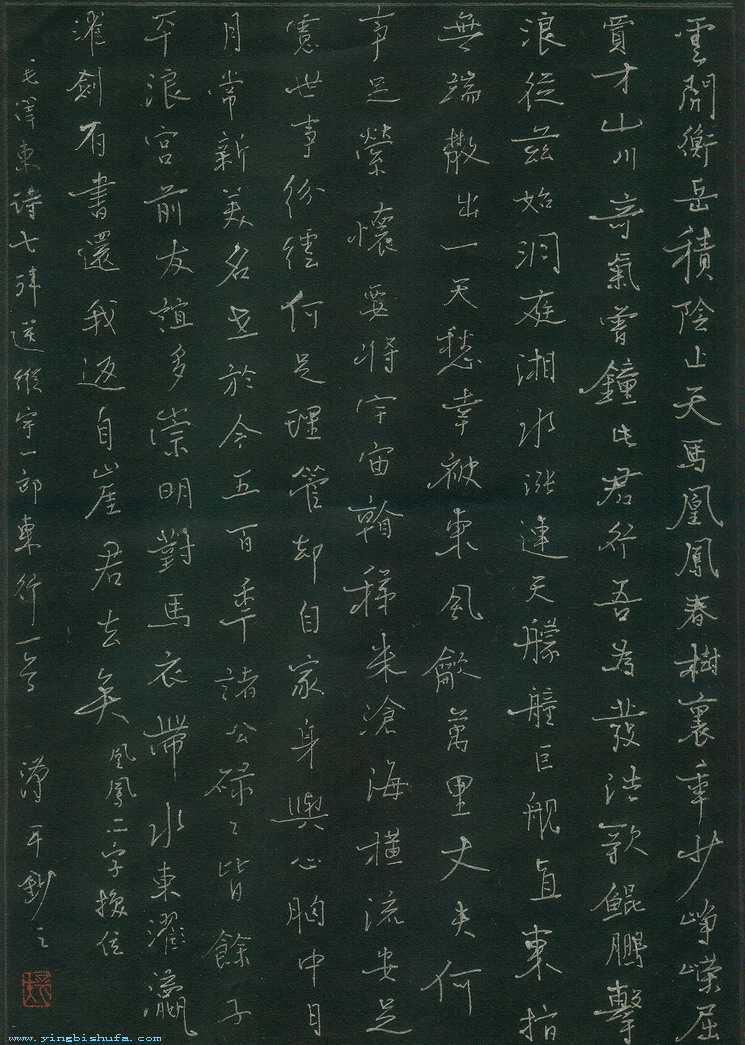 雲開衡岳積陰止天馬凰鳳春樹裏年少崢嶸屈
賈才山川奇氣曾鐘此君行吾為發浩歌鯤鵬擊
浪從茲始洞庭湘水漲連天艨艟巨舰直東指
無端散出一天愁幸被東風龡萬里丈夫何
事足縈懷要將宇宙稊米滄海橫流安足
慮世事紛紜何足理管却自家身與心胸中日
月常新美名世於今五百年諸公碌々皆餘子
平浪宮前友誼多崇明對馬衣帶水東濯瀛
濯劍有書還我返自崖君去矣
凰鳳二字換位
毛澤東詩七律送縱宇一郎東行一首
鈔之
www.yingbishufa.com